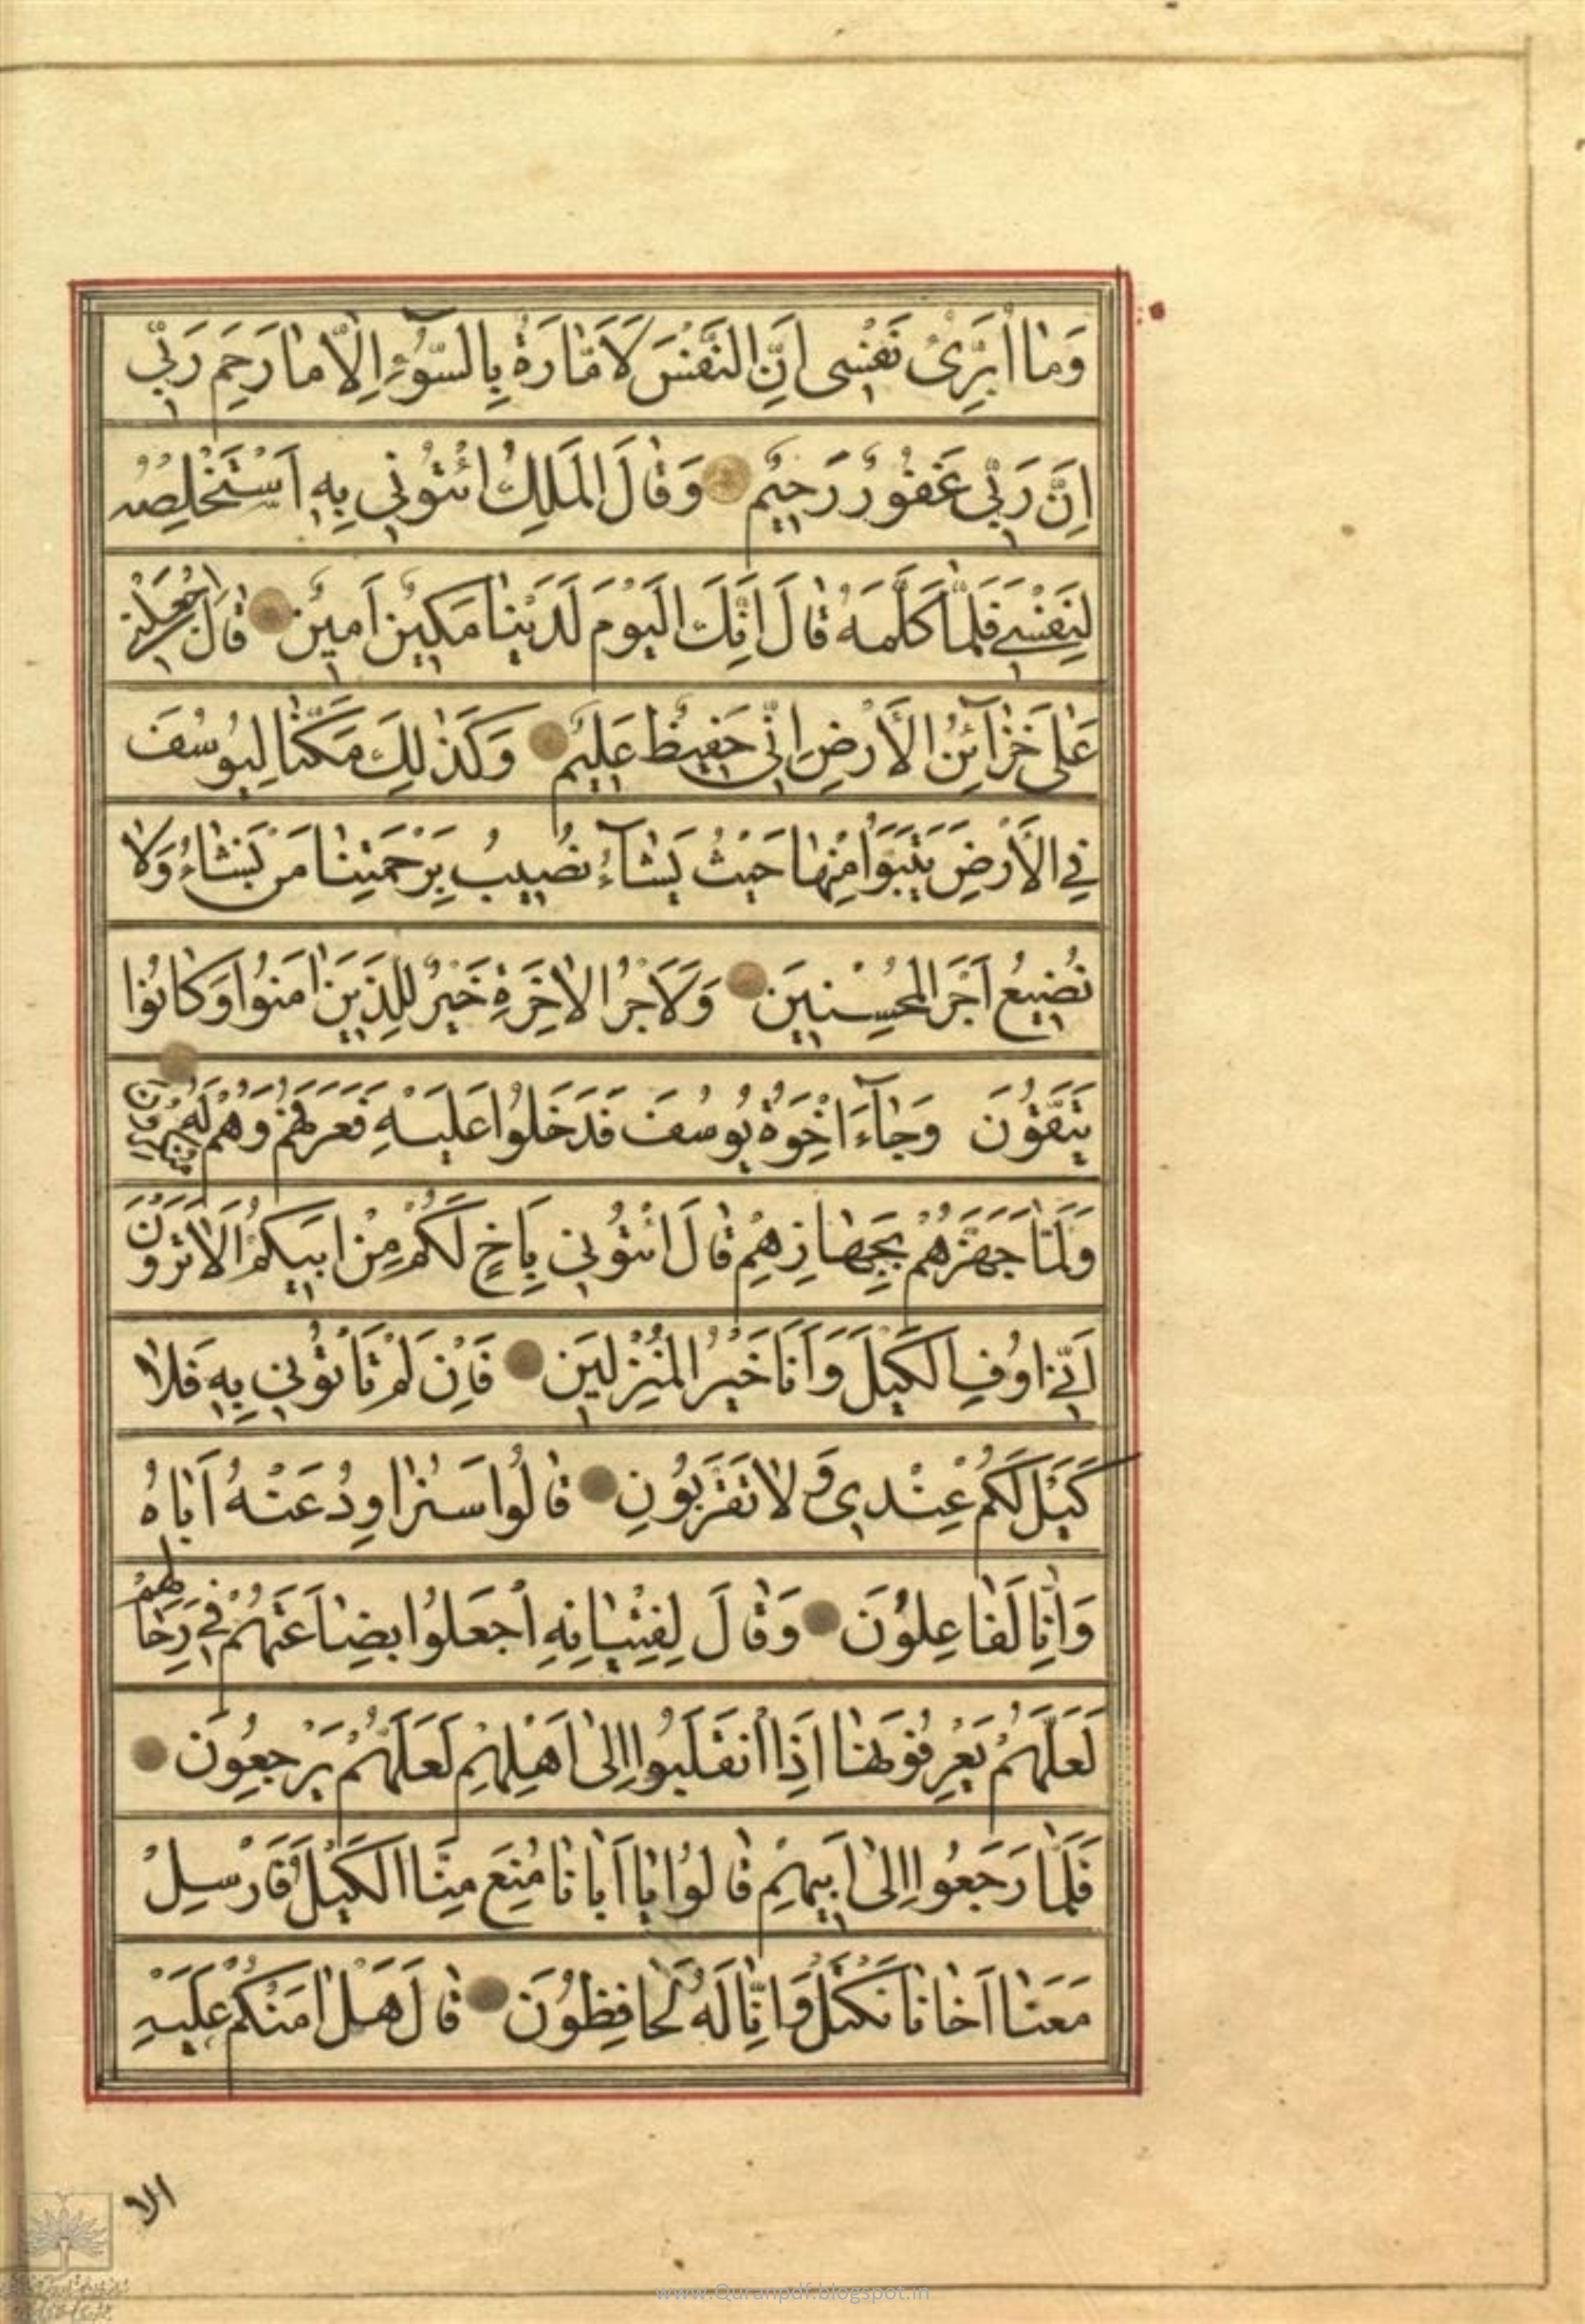 وَمٰا اُبَرِّئُ نَفْسِی اِنَّ النَّفْسَ لَاَمّٰارَةٌ بِالسُّوۤءِ اِلّٰا مٰا رَحِمَ رَبِّی
اِنَّ رَبِّی غَفُورٌ رَحِیمٌ وَقٰالَ الْمَلِكُ ائْتُونِی بِهِ اَسْتَخْلِصْهُ
لِنَفْسِی فَلَمّٰا كَلَّمَهُ قٰالَ اِنَّكَ الْیَوْمَ لَدَیْنٰا مَكِینٌ اَمِینٌ قٰالَ اجْعَلْنِی
عَلٰی خَزٰآئِنِ الْاَرْضِ اِنِّی حَفِیظٌ عَلِیمٌ وَكَذٰلِكَ مَكَّنّٰا لِیُوسُفَ
فِی الْاَرْضِ یَتَبَوَّاُ مِنْهٰا حَیْثُ یَشٰآءُ نُصِیبُ بِرَحْمَتِنٰا مَنْ نَشٰاءُ وَلٰا
نُضِیعُ اَجْرَ الْمُحْسِنِینَ وَلَاَجْرُ الْاٰخِرَةِ خَیْرٌ لِلَّذِینَ اٰمَنُوا وَكٰانُوا
یَتَّقُونَ وَجٰآءَ اِخْوَةُ یُوسُفَ فَدَخَلُوا عَلَیْهِ فَعَرَفَهُمْ وَهُمْ لَهُ مُنْكِرُونَ
وَلَمّٰا جَهَّزَهُمْ بِجَهٰازِهِمْ قٰالَ ائْتُونِی بِاَخٍ لَكُمْ مِنْ اَبِیكُمْ اَلٰا تَرَوْنَ
اَنِّی اُوفِی الْكَیْلَ وَاَنَا خَیْرُ الْمُنْزِلِینَ فَاِنْ لَمْ تَاْتُونِی بِهِ فَلٰا
كَیْلَ لَكُمْ عِنْدِی وَلٰا تَقْرَبُونِ قٰالُوا سَنُرٰاوِدُ عَنْهُ اَبٰاهُ
وَاِنّٰا لَفٰاعِلُونَ وَقٰالَ لِفِتْیٰانِهِ اجْعَلُوا بِضٰاعَتَهُمْ فِی رِحٰالِهِمْ
لَعَلَّهُمْ یَعْرِفُونَهٰا اِذَا انْقَلَبُوا اِلٰی اَهْلِهِمْ لَعَلَّهُمْ یَرْجِعُونَ
فَلَمّٰا رَجَعُوا اِلٰی اَبِیهِمْ قٰالُوا یٰا اَبٰانٰا مُنِعَ مِنَّا الْكَیْلُ فَاَرْسِلْ
مَعَنٰا اَخٰانٰا نَكْتَلْ وَاِنّٰا لَهُ لَحٰافِظُونَ قٰالَ هَلْ اٰمَنُكُمْ عَلَیْهِ
الا
www.Quranpdf.blogspot.in